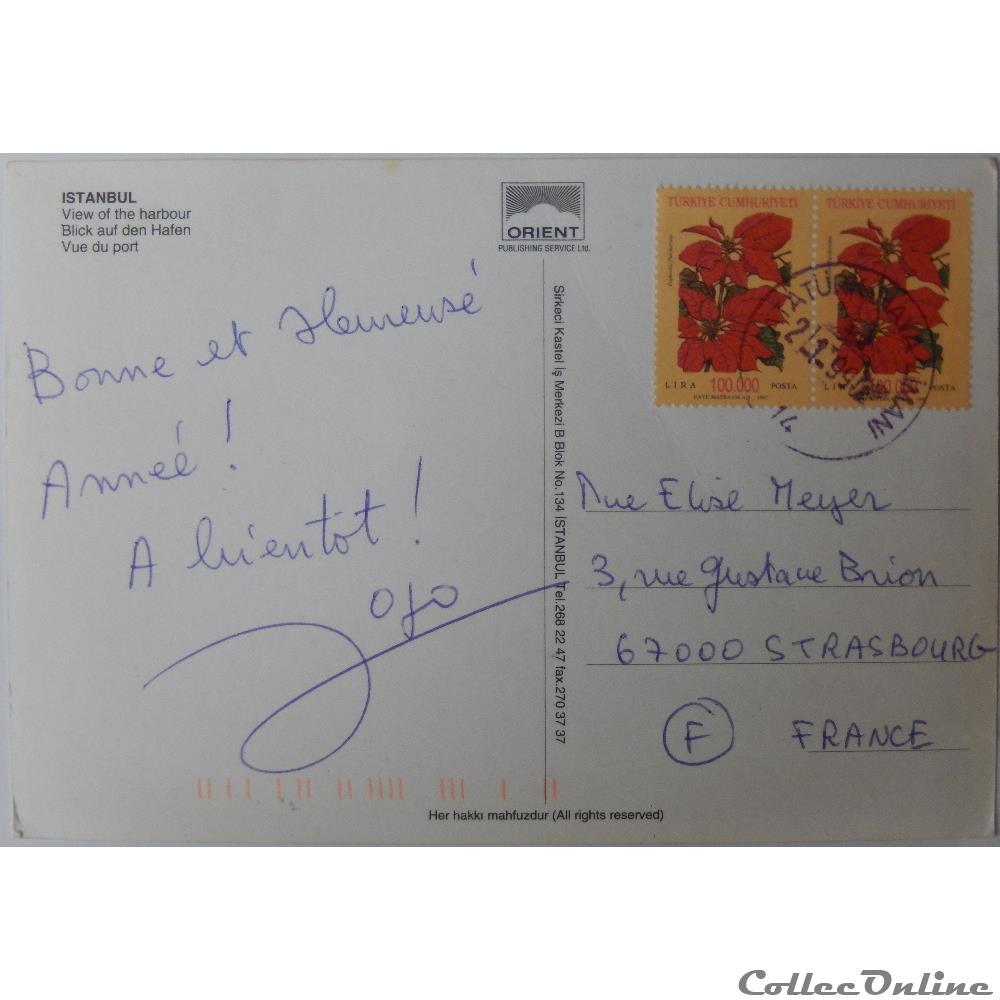 ISTANBUL
View of the harbour
Blick auf den Hafen
Vue du port
ORIENT
PUBLISHING SERVICE Ltd.
TÜRKİYE CUMHURİYETİ
LİRA 100.000 POSTA
TÜRKİYE CUMHURİYETİ
LİRA 100.000 POSTA
Bonne et Heureusé
Anneé !
A bientôt !
Sirkeci Kastel İş Merkezi B Blok No.134 İSTANBUL Tel.268 22 47 fax.270 37 37
Elise Meyer
3, rue Gustave Brion
67000 STRASBOURG
F FRANCE
Her hakkı mahfuzdur (All rights reserved)
CollecOnline